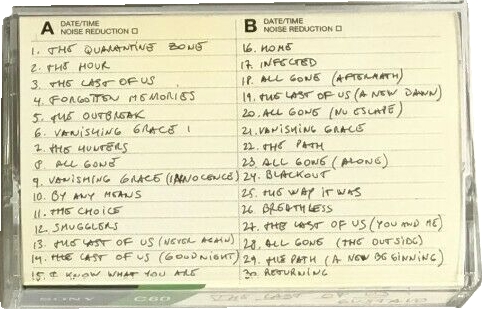 A DATE/TIME
NOISE REDUCTION
1. THE QUARANTINE ZONE
2. THE HOUR
3. THE LAST OF US
4. FORGOTTEN MEMORIES
5. THE OUTBREAK
6. VANISHING GRACE
7. THE HUNTERS
8. ALL GONE
9. VANISHING GRACE (INNOCENCE)
10. BY ANY MEANS
11. THE CHOICE
12. SMUGGLERS
13. THE LAST OF US (NEVER AGAIN)
14. THE LAST OF US (GOODNIGHT)
15. I KNOW WHAT YOU ARE
B DATE/TIME
NOISE REDUCTION
16. HOME
17. INFECTED
18. ALL GONE (AFTERMATH)
19. THE LAST OF US (A NEW DAWN)
20. ALL GONE (NO ESCAPE)
21. VANISHING GRACE
22. THE PATH
23. ALL GONE (ALONE)
24. BLACKOUT
25. THE WAY IT WAS
26. BREATHLESS
27. THE LAST OF US (YOU AND ME)
28. ALL GONE (THE OUTSIDE)
29. THE PATH (A NEW BEGINNING)
30. RETURNING
SONY C60
THE LAST OF US